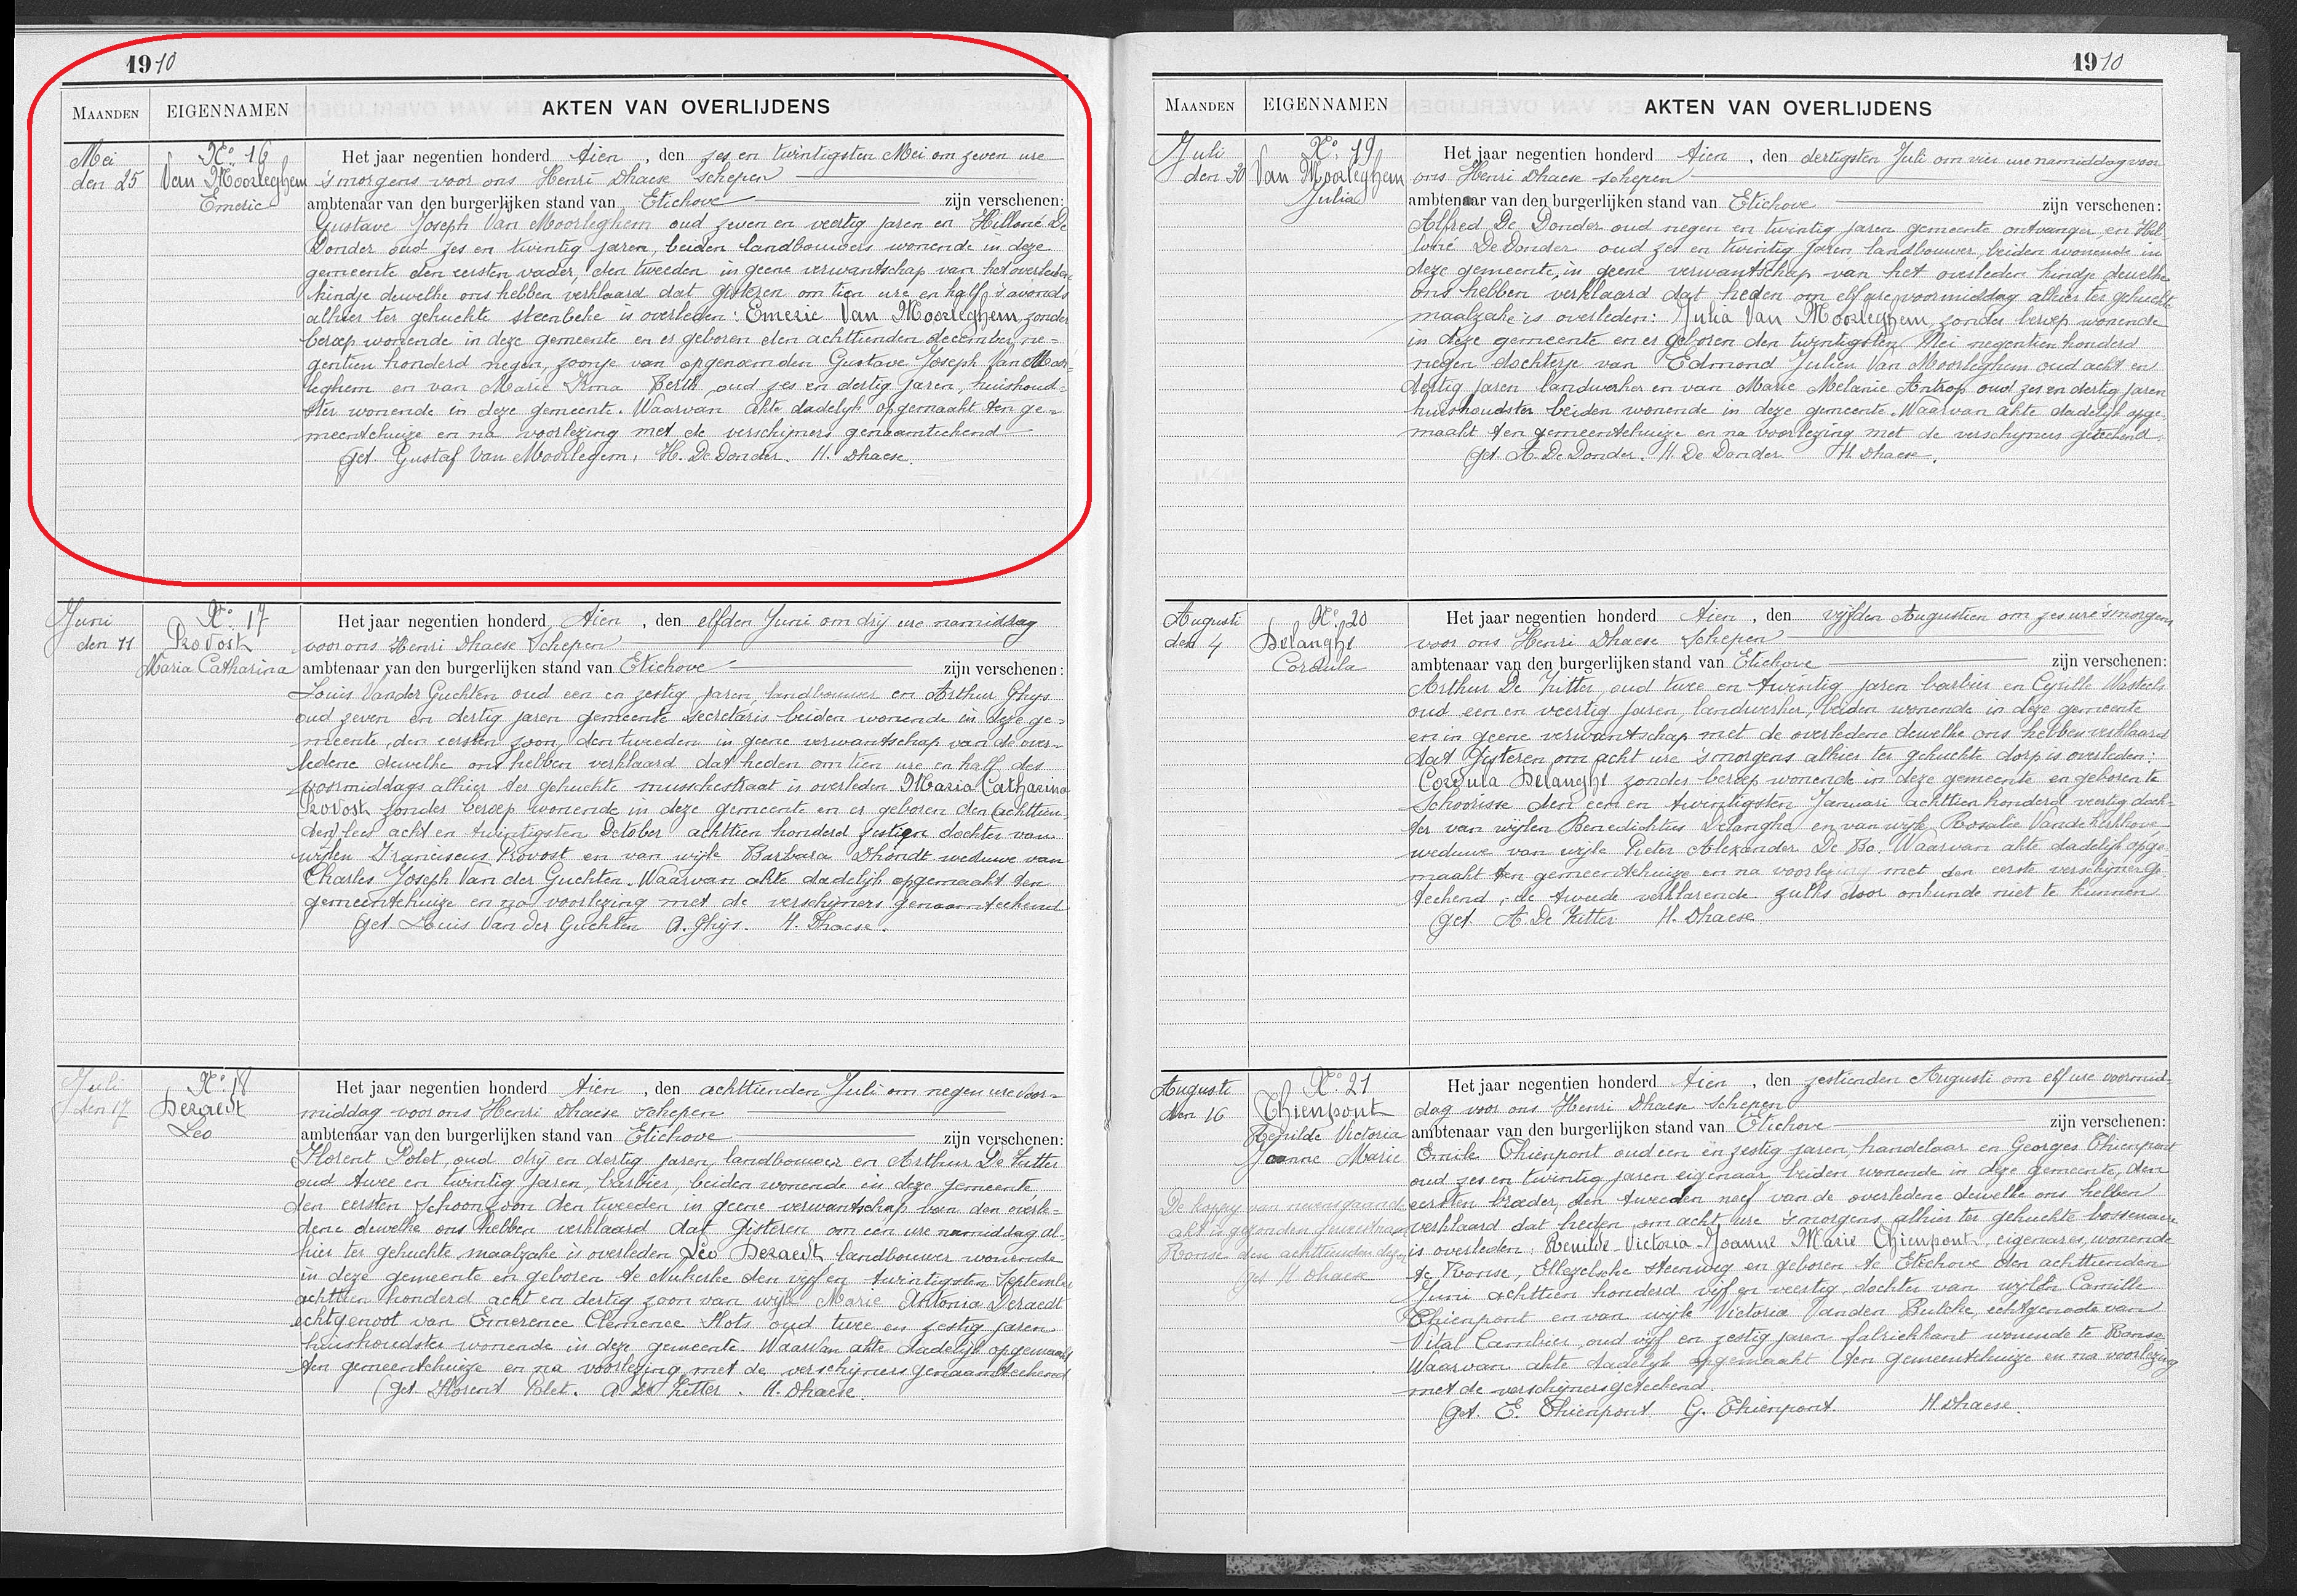 1910
MAANDEN EIGENNAMEN AKTEN VAN OVERLIJDENS
Mei
den 25
No 16
Van Moorleghem
Emeric
Het jaar negentien honderd tien, den zes en twintigsten Mei om zeven ure
's morgens voor ons Henri Dhaese schepen
ambtenaar van den burgerlijken stand van Etichove zijn verschenen:
Gustave Joseph Van Moorleghem oud zeven en veertig jaren en Hilloné De
Donder oud zes en twintig jaren, beiden landbouwers wonende in deze
gemeente den eersten vader, den tweeden in geene verwantschap van het overleden
kindje dewelke ons hebben verklaard dat gisteren om tien ure en half 's avonds
alhier ter gehuchte steenbeke is overleden: Emeric Van Moorleghem, zonder
beroep wonende in deze gemeente en er geboren den achttienden december ne=
gentien honderd negen, zoontje van opgenoemden Gustave Joseph Van Moor=
leghem en van Marie Irma Berth oud zes en dertig jaren, huishoud=
ster wonende in deze gemeente. Waarvan akte dadelijk opgemaakt ten ge=
meentehuize en na voorlezing met de verschijners genaamteekend
get. Gustaf Van Moorlegem, H. De Donder. H. Dhaese.
Juni
den 11
No 17
Provost
Maria Catharina
Het jaar negentien honderd tien, den elfden Juni om drij ure namiddag
voor ons Henri Dhaese Schepen
ambtenaar van den burgerlijken stand van Etichove zijn verschenen:
Louis Vander Guchten oud een en zestig jaren, landbouwer en Arthur Ghys
oud zeven en dertig jaren gemeente secretaris beiden wonende in deze ge=
meente, den eersten zoon, den tweeden in geene verwantschap van de over=
ledene dewelke ons hebben verklaard dat heden om tien ure en half des
voormiddags alhier ter gehuchte musschestraat is overleden Maria Catharina
Provost zonder beroep wonende in deze gemeente en er geboren den (achttien
den) lees acht en twintigsten October achttien honderd zestien dochter van
wijlen Franciscus Provost en van wijle Barbara Dhondt weduwe van
Charles Joseph Van der Guchten. Waarvan akte dadelijk opgemaakt ten
gemeentehuize en na voorlezing met de verschijners genaamteekend
get Louis Van der Guchten A. Ghijs. H. Dhaese.
Juli
den 17
No 18
Deraedt
Leo
Het jaar negentien honderd tien, den achttienden Juli om negen ure voor=
middag voor ons Henri Dhaese schepen
ambtenaar van den burgerlijken stand van Etichove zijn verschenen:
Florent Polet, oud drij en dertig jaren, landbouwer en Arthur De Zutter
oud twee en twintig jaren, barbier, beiden wonende in deze gemeente,
den eersten Schoonzoon den tweeden in geene verwantschap van den overle=
dene dewelke ons hebben verklaard dat gisteren om een ure namiddag al=
hier ter gehuchte maalzake is overleden Leo Deraedt landbouwer wonende
in deze gemeente en geboren te Nukerke den vijf en twintigsten September
achttien honderd acht en dertig zoon van wijle Marie Antonia Deraedt
echtgenoot van Emerence Clemence Hots oud twee en zestig jaren
huishoudster wonende in deze gemeente. Waarvan akte dadelijk opgemaakt
ten gemeentehuize en na voorlezing met de verschijners genaamteekend
(get. Florent Polet. A. De Zutter. H. Dhaese.
1910
MAANDEN EIGENNAMEN AKTEN VAN OVERLIJDENS
Juli
den 30
No 19
Van Moorleghem
Julia
Het jaar negentien honderd tien, den dertigsten Juli om vier ure namiddag voor
ons Henri Dhaese schepen
ambtenaar van den burgerlijken stand van Etichove zijn verschenen:
Alfred De Donder oud negen en twintig jaren gemeente ontvanger, en Hil
loné De Donder oud zes en twintig jaren landbouwer, beiden wonende in
deze gemeente, in geene verwantschap van het overleden kindje dewelke
ons hebben verklaard dat heden om elf ure voormiddag alhier ter gehucht
maalzake is overleden: Julia Van Moorleghem, zonder beroep wonende
in deze gemeente en er geboren den twintigsten Mei negentien honderd
negen dochterje van Edmond Julien Van Moorleghem oud acht en
dertig jaren landwerker en van Marie Melanie Antrop oud zes en dertig jaren
huishoudster beiden wonende in deze gemeente. Waarvan akte dadelijk opge
maakt ten gemeentehuize en na voorlezing met de verschijners geteekend.
get. A. De Donder. H. De Donder H. Dhaese.
Augusti
den 4
No 20
Delanghe
Cordula
Het jaar negentien honderd tien, den vijfden Augustien om zes ure 's morgens
voor ons Henri Dhaese Schepen
ambtenaar van den burgerlijken stand van Etichove zijn verschenen:
Arthur De Zutter, oud twee en twintig jaren barbier en Cyrille Wasteels
oud een en veertig jaren, landwerker, beiden wonende in deze gemeente
en in geene verwantschap met de overledene dewelke ons hebben verklaard
dat gisteren om acht ure 's morgens alhier ter gehuchte dorp is overleden:
Cordula Delanghe zonder beroep wonende in deze gemeente en geboren te
Schoorisse den een en twintigsten Januari achttien honderd veertig doch=
ter van wijlen Benedichtus Delanghe en van wijle Rosalie Vande Kerkhove
weduwe van wijle Pieter Alexander De Bo. Waarvan akte dadelijk opge=
maakt ten gemeentehuize en na voorlezing met den eerste verschijner ge=
teekend, de tweede verklarende zulks door onkunde niet te kunnen
get. A De Zutter H. Dhaese
Augusti
den 16
No 21
Thienpont
Renilde Victoria
Joanne Marie
De koppy van nevensgaande
akt is gezonden
Ronse den achttienden dezer
get H Dhaese
Het jaar negentien honderd tien, den zestienden Augusti om elf ure voormid
dag voor ons Henri Dhaese schepen
ambtenaar van den burgerlijken stand van Etichove zijn verschenen:
Emile Thienpont oud een en zestig jaren, handelaar en Georges Thienpont
oud zes en twintig jaren eigenaar, beiden wonende in deze gemeente, den
eersten broeder, den tweeden neef van de overledene dewelke ons hebben
verklaard dat heden om acht ure 's morgens alhier ter gehuchte bossenare
is overleden, Renilde Victoria Joanne Marie Thienpont, eigenares, wonende
te Ronse, Ellezelsche steenweg en geboren te Etichove den achttienden
Juni achttien honderd vijf en veertig, dochter van wijlen Camille
Thienpont en van wijle Victoria Vanden Bulcke, echtgenoote van
Vital Cambier, oud vijf en zestig jaren fabriekkant wonende te Ronse
Waarvan akte dadelijk opgemaakt ten gemeentehuize en na voorlezing
met de verschijners geteekend.
get. E. Thienpont G. Thienpont. H Dhaese.